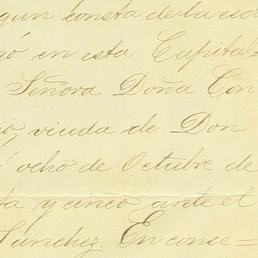 gun consta de la esc
gó en esta Capital
Señora Doña Con
io, viuda de Don
i ocho de Octubre de
ta y cinco ante el
Sanchez. En conse=